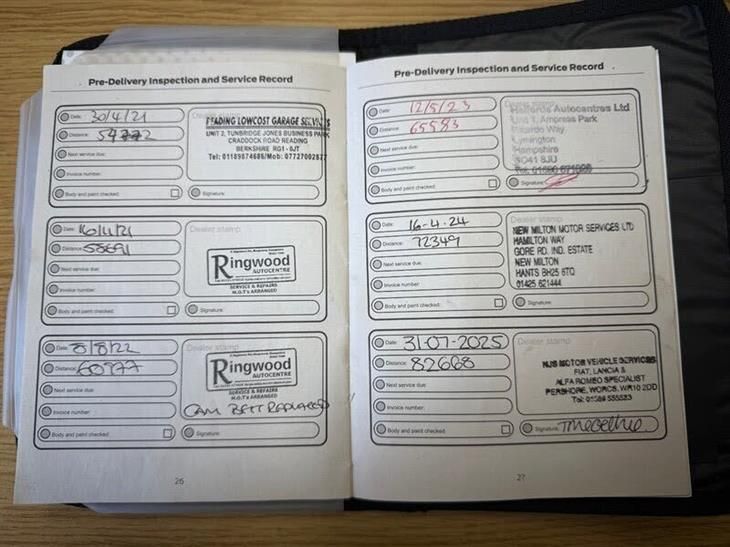 Pre-Delivery Inspection and Service Record
Date: 30/4/21
Distance:
Next service due:
Invoice number:
Body and paint checked:
READING LOWCOST GARAGE SERVICES
UNIT 2, TUNBRIDGE JONES BUSINESS PARK
CRADDOCK ROAD READING
BERKSHIRE RG1 - 0JT
Tel: 01189874685/Mob:
Signature:
Date: 16/11/21
Distance: 58691
Next service due:
Invoice number:
Body and paint checked:
Dealer stamp
Ringwood
AUTOCENTRE
SERVICE & REPAIRS
M.O.T's ARRANGED
Signature:
Date: 8/8/22
Distance: 60977
Next service due:
Invoice number:
Body and paint checked:
Dealer stamp
Ringwood
AUTOCENTRE
SERVICE & REPAIRS
M.O.T's ARRANGED
CAM BELT REPLACED
Signature:
26
Pre-Delivery Inspection and Service Record
Date: 12/5/23
Distance: 65583
Next service due:
Invoice number:
Body and paint checked:
Halfords Autocentres Ltd
Unit 1, Ampress Park
Way
Lymington
Hampshire
SO41 8JU
Signature:
Date: 16-4-24
Distance: 72349
Next service due:
Invoice number:
Body and paint checked:
Dealer stamp
NEW MILTON MOTOR SERVICES LTD
HAMILTON WAY
GORE RD. IND. ESTATE
NEW MILTON
HANTS BH25 6TQ
01425 621444
Signature:
Date: 31-07-2025
Distance: 82668
Next service due:
Invoice number:
Body and paint checked:
Dealer stamp
NJS MOTOR VEHICLE SERVICES
FIAT, LANCIA &
ALFA ROMEO SPECIALIST
PERSHORE, WORCS, WR10 2DD
Tel: 01386 555583
Signature:
27